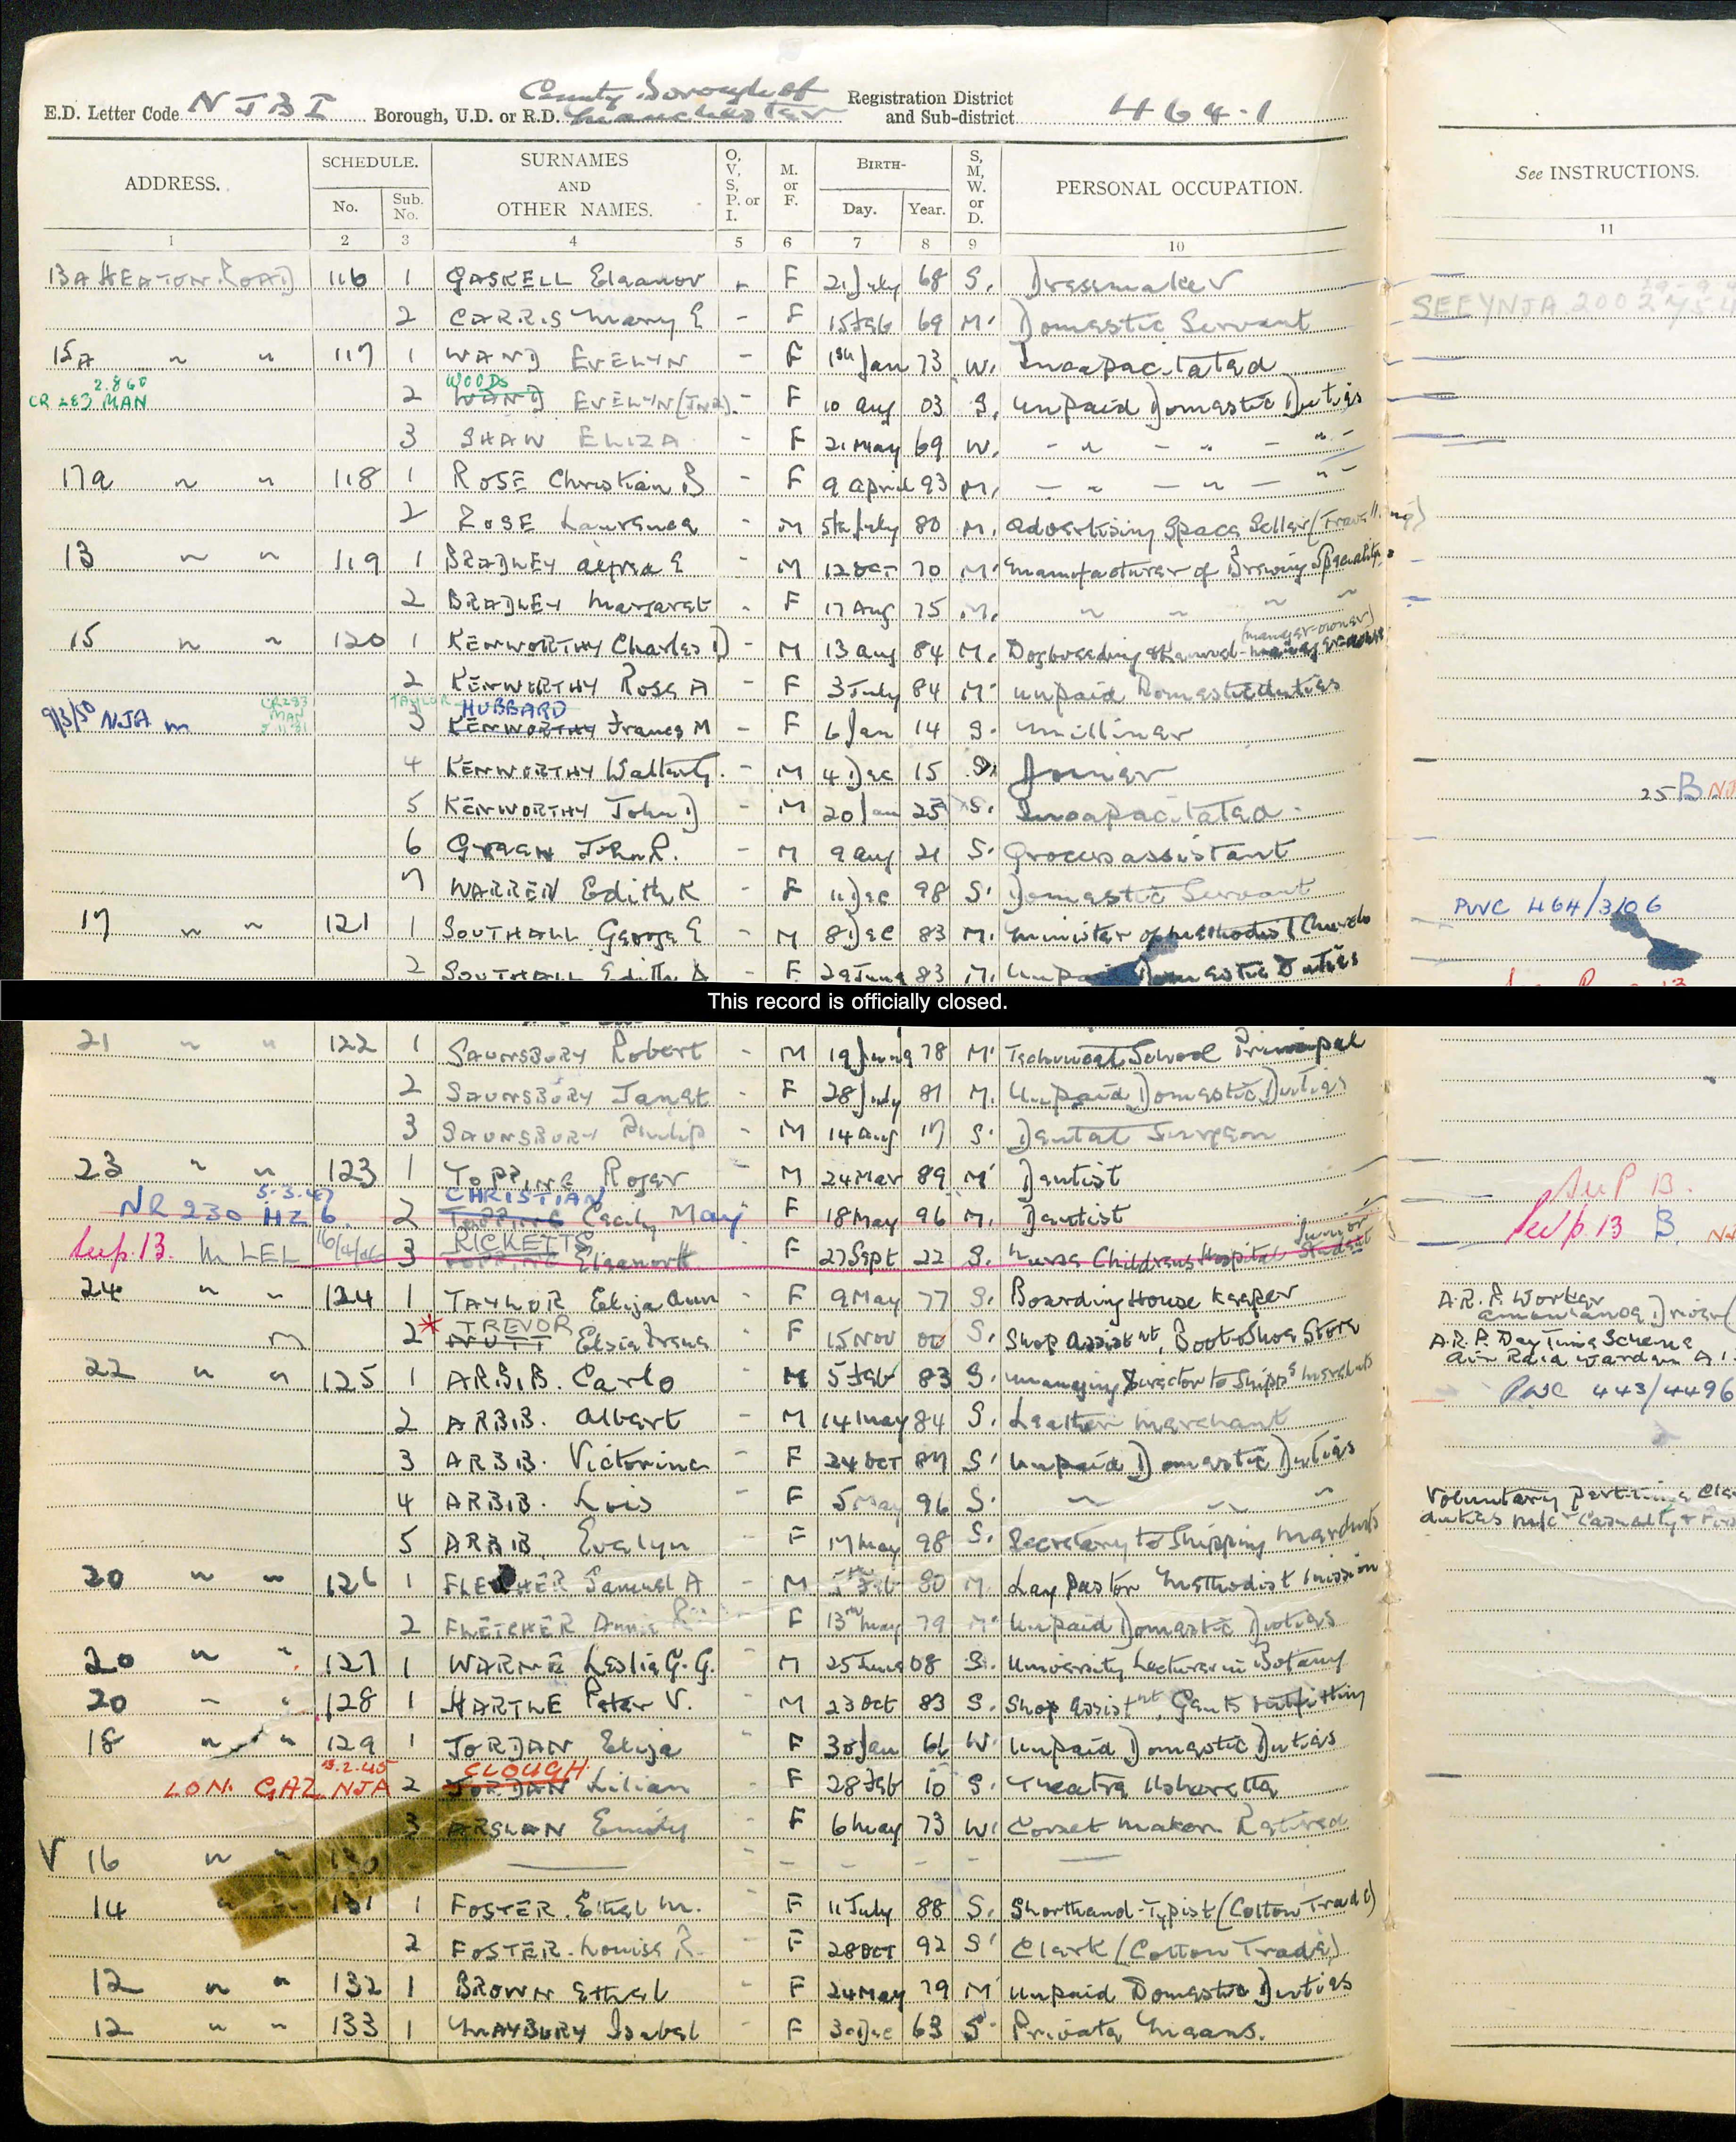 E.D. Letter Code NJBI Borough, U.D. or R.D. County Borough of Manchester Registration District and Sub-district 464-1
ADDRESS. SCHEDULE. No. Sub. No. SURNAMES AND OTHER NAMES. O, V, S, P. or I. M. or F. BIRTH- Day. Year. S, M, W. or D. PERSONAL OCCUPATION. See INSTRUCTIONS.
1 2 3 4 5 6 7 8 9 10 11
13A HEATON ROAD 116 1 GASKELL Eleanor - F 21 July 68 S. Dressmaker
2 CARRIS Mary E - F 15 Feb 69 M. Domestic Servant SEE YNJA 200
15A " " 117 1 WAND EVELYN - F 1st Jan 73 W. Incapacitated
2.860 CR 283 MAN 2 WOODS WAND EVELYN (JNR). - F 10 Aug 03 S. Unpaid Domestic Duties
3 SHAW ELIZA - F 21 May 69 W. - " - " - " -
17a " " 118 1 ROSE Christian B - F 9 April 93 M. - " - " - " -
2 ROSE Laurence - M 5th July 80 M. Advertising Space Seller (Travelling)
13 " " 119 1 BRADLEY Alfred E - M 12 Oct 70 M. Manufacturer of Brewing Specialities
2 BRADLEY Margaret - F 17 Aug 75 M. " " " "
15 " " 120 1 KENWORTHY Charles D - M 13 Aug 84 M. Dogbreeding & Kennel- (manager-owner)
2 KENWORTHY Rose A - F 3 July 84 M. Unpaid Domestic duties
9/3/50 NJA m CR283 MAN 3 TAYLOR HUBBARD KENWORTHY Frances M - F 6 Jan 14 S. Milliner
4 KENWORTHY Walter G. - M 4 Dec 15 S. Joiner
5 KENWORTHY John D - M 20 Jan 25 S. Incapacitated 25 B
6 GREEN John R. - M 9 Aug 21 S. Grocers assistant
7 WARREN Edith K - F 11 Dec 98 S. Domestic Servant
17 " " 121 1 SOUTHALL George E - M 8 Dec 83 M. Minister of Methodist Church PWC 464/3106
2 SOUTHALL Edith A - F 29 June 83 M. Unpaid Domestic Duties
This record is officially closed.
21 " " 122 1 SAUNSBURY Robert - M 19 June 78 M. Technical School Principal
2 SAUNSBURY Janet - F 28 July 81 M. Unpaid Domestic Duties
3 SAUNSBURY Philip - M 14 Aug 17 S. Dental Surgeon
23 " " 123 1 TOPPING Roger - M 24 Mar 89 M. Dentist
NR 230 HZ 6. 5.3.47 2 CHRISTIAN TOPPING Cecily May F 18 May 96 M. Dentist Sup B.
Sup. 13. m LEL 3 RICKETTS TOPPING Eleanor H F 27 Sept 22 S. Nurse Childrens Hospital Junior Student Sup. 13 B
24 " " 124 1 TAYLOR Eliza Ann - F 9 May 77 S. Boarding House Keeper A.R.P. Worker Ambulance Driver
m 2 * TREVOR NUTT Elsie Irene - F 15 Nov 00 S. Shop Assistnt, Boot & Shoe Store A.R.P. Day Time Scheme Air Raid Warden
22 " " 125 1 ARBIB. Carlo M 5 Feb 83 S. Managing Director to Shipps Merchants PWC 443/4496
2 ARBIB. Albert - M 14 May 84 S. Leather Merchant
3 ARBIB. Victorine - F 24 Oct 87 S. Unpaid Domestic Duties
4 ARBIB. Lois - F 5 May 96 S. " " " Voluntary part-time
5 ARBIB Evelyn - F 17 May 98 S. Secretary to Shipping Merchants duties M/c Casualty &
20 " " 126 1 FLETCHER Samuel A - M 80 M. Lay Pastor Methodist Mission
2 FLETCHER Annie F 13th May 79 M. Unpaid Domestic Duties
20 " " 127 1 WARNE Leslie G. G. M 25 June 08 S. University Lecturer in Botany
20 " " 128 1 HARTLE Peter V. M 23 Oct 83 S. Shop Assistnt, Gents Outfitting
18 " " 129 1 JORDAN Eliza - F 30 Jan 61 W. Unpaid Domestic Duties
LON. GAZ. NJA 13.2.45 2 CLOUGH JORDAN Lilian - F 28 Feb 10 S. Theatre Usherette
3 ARSLAN Emily - F 6 May 73 W. Corset Maker Retired
V 16 " " 130 - - - - -
14 " " 131 1 FOSTER. Ethel M. - F 11 July 88 S. Shorthand-Typist (Cotton Trade)
2 FOSTER. Louise R. - F 28 Oct 92 S. Clerk (Cotton Trade)
12 " " 132 1 BROWN Ethel - F 24 May 79 M Unpaid Domestic Duties
12 " " 133 1 MAYBURY Isabel - F 30 Dec 63 S. Private Means.